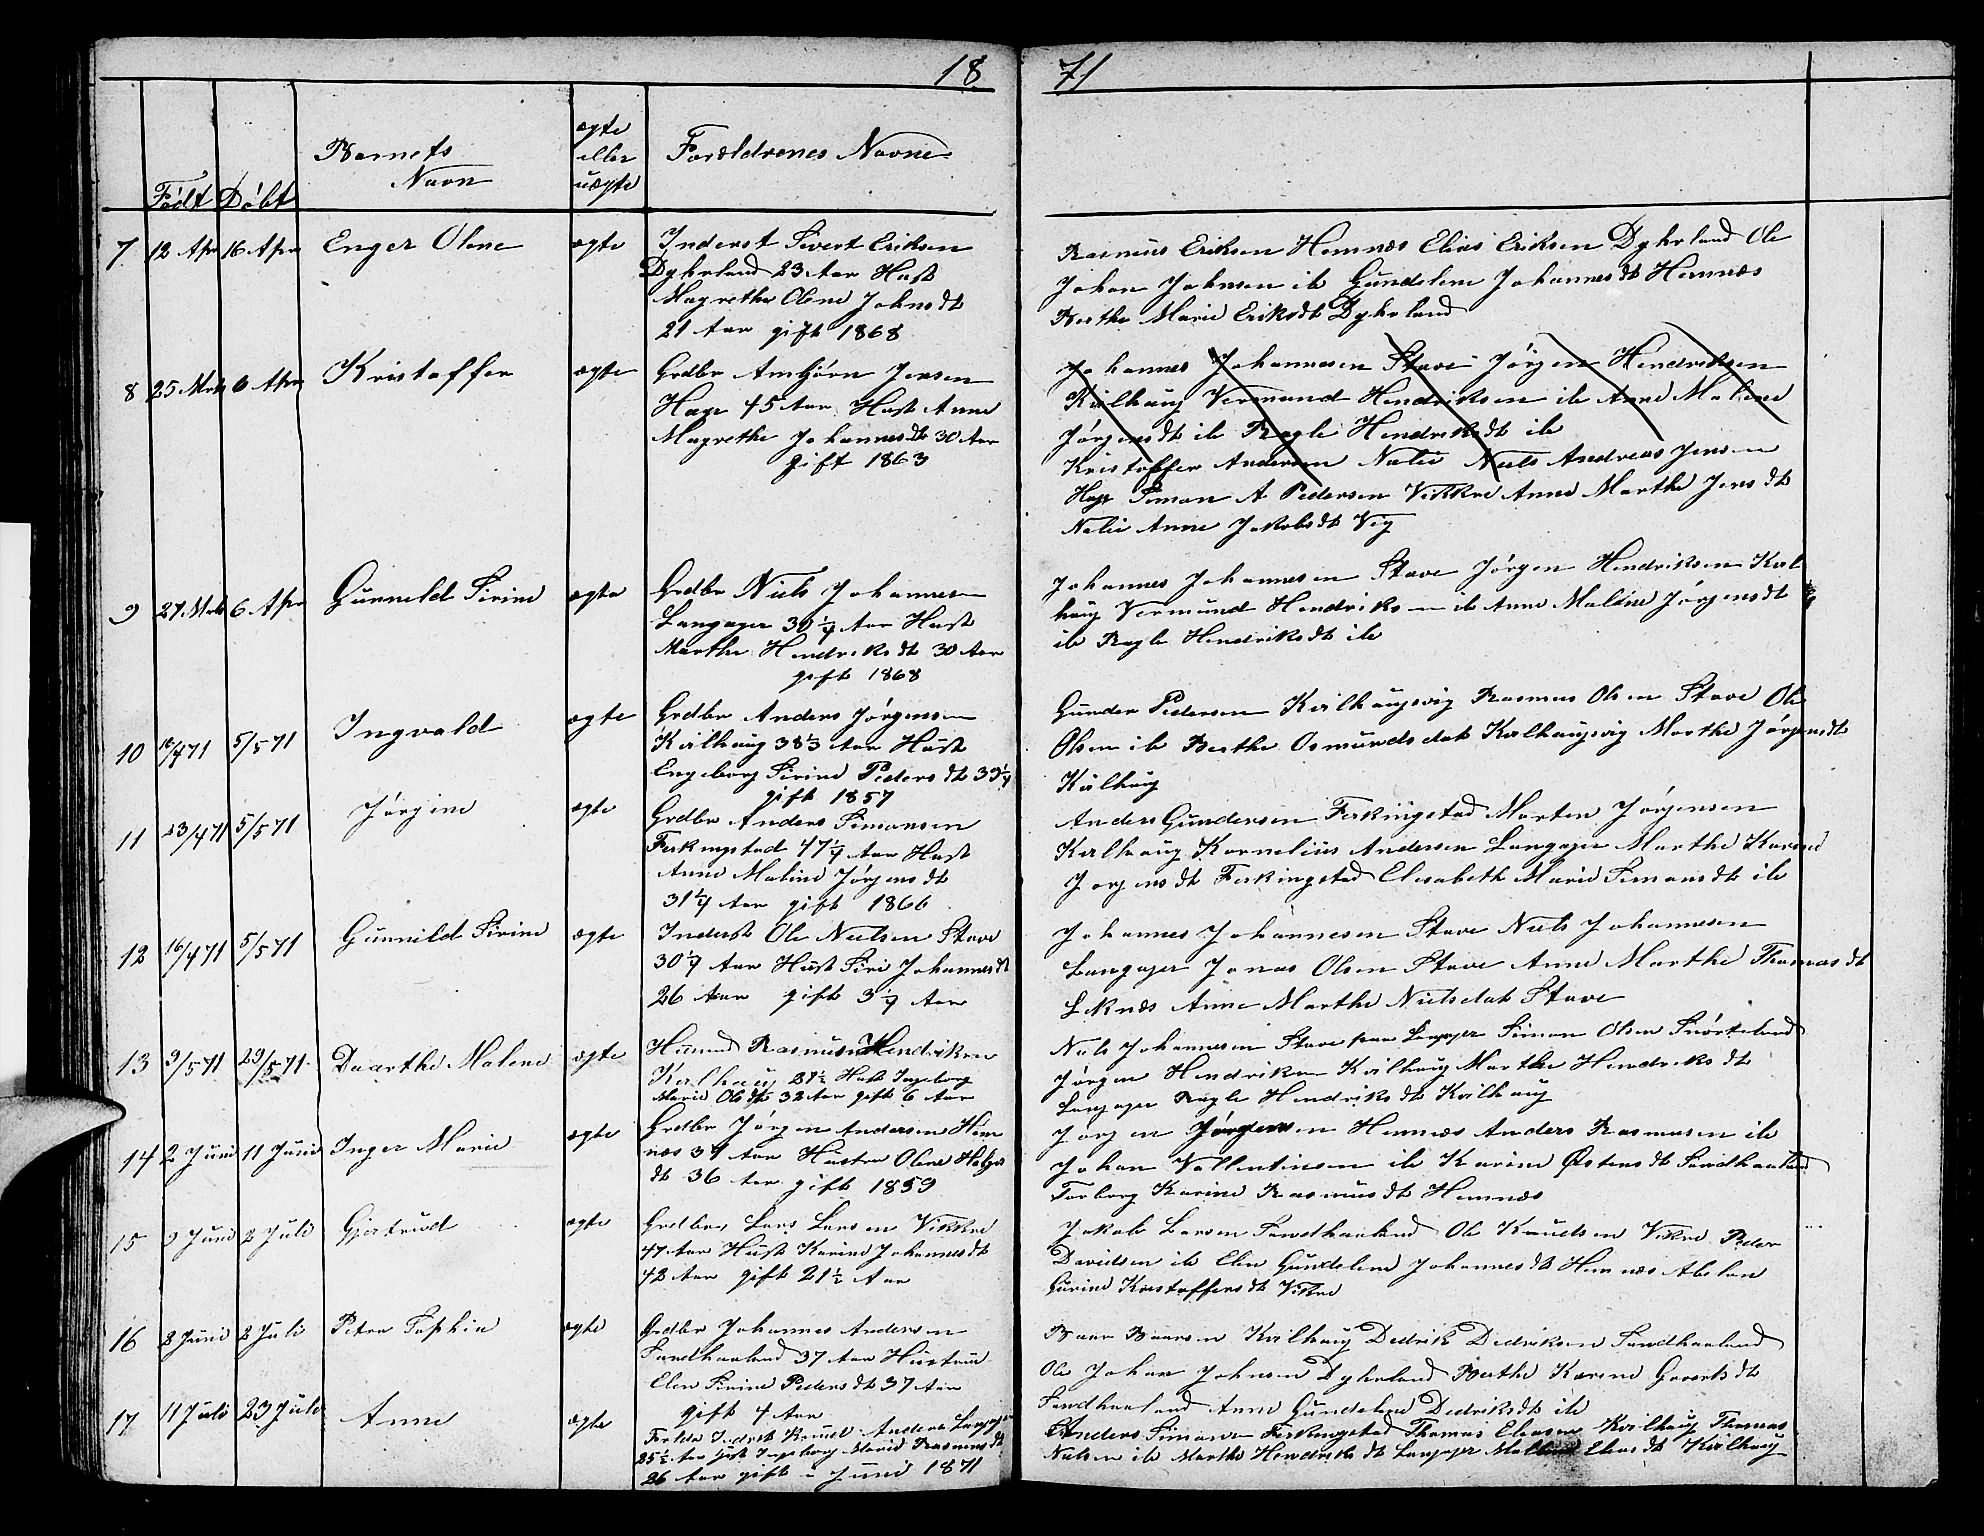 18 71
Født Døbt Barnets Navn ægte eller uægte Forældrenes Navne
7 12 Apr 16 Apr Enger Olene ægte Inderst Sivert Eriksen
Dyhrland 23 Aar Hust
Magrethe Olene Johnsdt
21 Aar gift 1868
Rasmus Eriksen Hemnæs Elias Eriksen Dyhrland Ole
Johan Johnsen ib Gundelene Johannesdt Hemnæs
Berthe Marie Eriksdt Dyhrland
8 25 Mrts 6 Apr Kristoffer ægte Grdbr Ambjørn Jensen
Hage 45 Aar Hust Anne
Magrethe Johannesdt 30 Aar
gift 1863
Johannes Johannesen Stave Jørgen Hendriksen
Kvilhaug Vermund Hendriksen ib Anne Malene
Jørgensdt ib Ragle Hendriksdt ib
Kristoffer Andersen Nalie Niels Andreas Jensen
Hage Simon A Pedersen Vikre Anne Marthe Jensdt
Nalie Anne Jakobsdt Vig
9 27 Mrts 6 Apr Gunneld Sirine ægte Grdbr Niels Johannesen
Langager 30 1/4 Aar Hust
Marthe Hendriksdt 30 Aar
gift 1868
Johannes Johannesen Stave Jørgen Hendriksen Kvil
haug Vermund Hendriksen ib Anne Malene Jørgensdt
ib Ragle Hendriksdt ib
10 16/4 71 5/5 71 Ingvald ægte Grdbr Anders Jørgensen
Kvilhaug 38 1/3 Aar Hust
Engeborg Sirine Pedersdt 33 1/4
gift 1857
Gunder Pedersen Kvilhaugsvig Rasmus Olsen Stave Ole
Olsen ib Berthe Osmundsdat Kvilhaugsvig Marthe Jørgensdt
Kvilhaug
11 23/4 71 5/5 71 Jørgine ægte Grdbr Anders Simonsen
Ferkingstad 47 1/4 Aar Hust
Anne Maline Jørgensdt
31 1/4 Aar gift 1866
Anders Gundersen Ferkingstad Morten Jørgensen
Kvilhaug Kornelius Andersen Langager Marthe Karine
Jørgensdt Ferkingstad Elisabeth Marie Simonsdt ib
12 16/4 71 5/5 71 Gunnild Sirine ægte Inderst Ole Nielsen Stave
30 1/4 Aar Hust Siri Johannesdt
26 Aar gift 3 1/4 Aar
Johannes Johannesen Stave Niels Johannesen
Langager Jonas Olsen Stave Anne Marthe Thomasdt
Leknæs Anne Marthe Nielsdat Stave
13 3/5 71 29/5 71 Daarthe Malene ægte Husmd Rasmus Hendriksen
Kvilhaug 27 1/2 Hust Ingeborg
Marie Olsdt 32 Aar gift 6 Aar
Niels Johannesen Stave paa Langager Simon Olsen Snørteland
Jørgen Hendriksen Kvilhaug Marthe Hendriksdt
Langager Ragle Hendriksdt Kvilhaug
14 2 Juni 11 Juni Inger Marie ægte Grdbr Jørgen Andersen Hem
næs 37 Aar Hustru Olene Helges
dt 36 Aar gift 1859
Jørgen Jørgensen Hemnæs Anders Rasmusen ib
Johan Vallentinsen ib Karine Østensdt Sandhaaland
Torborg Karine Rasmusdt Hemnæs
15 9 Juni 2 Juli Gjertrud ægte Grdbr Lars Larsen Vikre
47 Aar Hust Karine Johannesdt
42 Aar gift 21 1/2 Aar
Jakob Larsen Sandhaaland Ole Knudsen Vikre Peder
Davidsen ib Elen Gundelene Johannesdt Hemnæs Abelon
Gurine Kristoffersdt Vikre
16 8 Juni 2 Juli Petra Sophie ægte Grdbr Johannes Andersen
Sandhaaland 37 Aar Hustrue
Elen Sirine Pedersdt 37 Aar
gift 4 Aar
Baar Baarsen Kvilhaug Dedrik Dedriksen Sandhaaland
Ole Johan Johnsen Dyhrland Berthe Karene Govertsdt
Sandhaaland Anne Gundelene Dedriksdt ib
17 11 Juli 23 Juli Anne ægte Forldr Inderst Knud Anders Langager
25 1/2 Aar Hust Ingeborg Marie Rasmusdt
26 Aar gift i Juni 1871
Anders Simonsen Ferkingstad Thomas Eliasen Kvilhaug Thomas
Nielsen ib Marthe Hendriksdt Langager Malene Eliasdt Kvilhaug